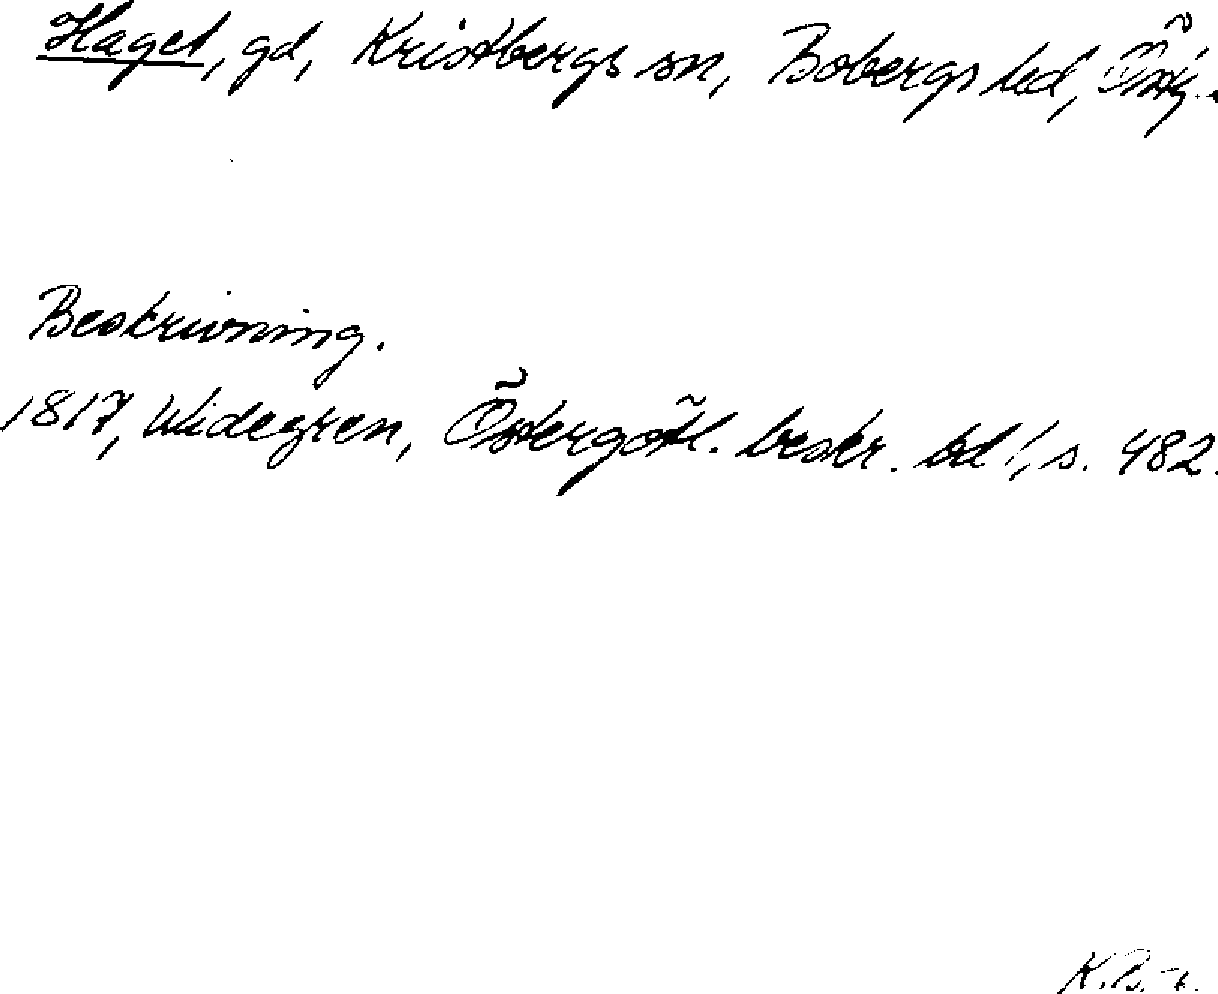 Haget, gd, Kristbergs sn, Bobergs hd, Östg.
Beskrivning.
1817, Widegren, Östergötl. beskr. bd 1, s. 482.
K.B.